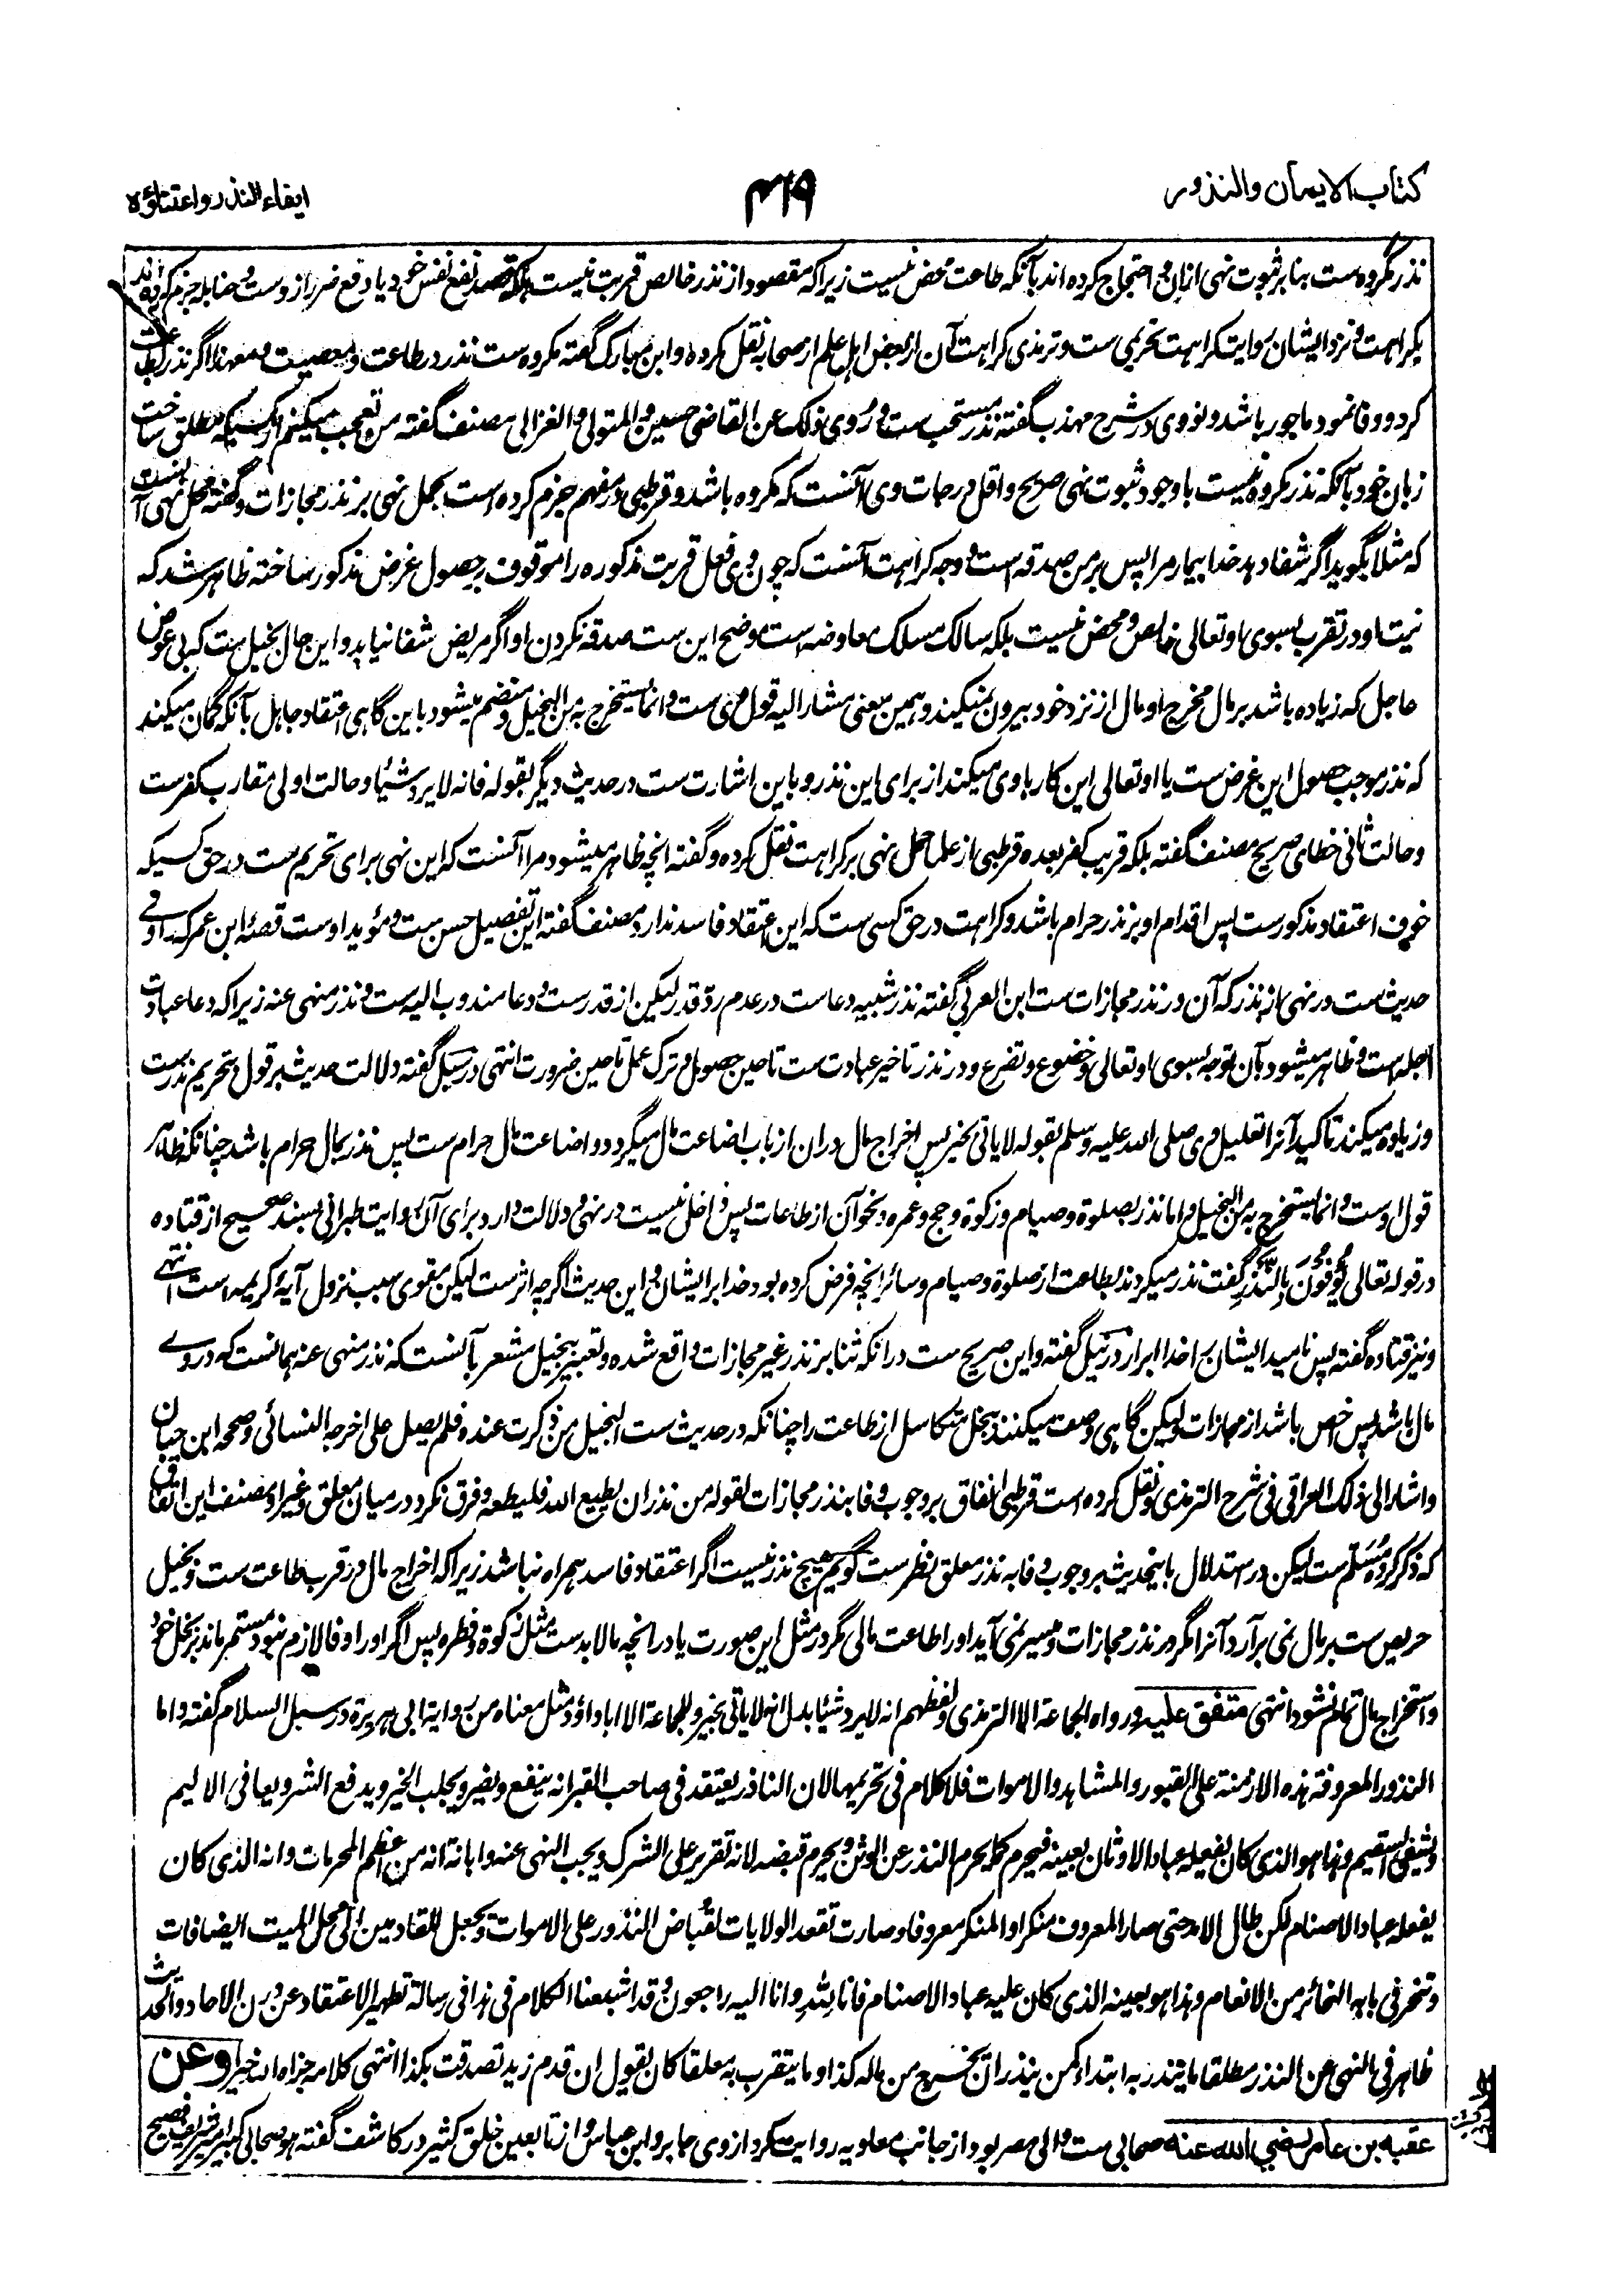 كتاب الايمان والنذور
۴۱۹
ايفاء النذر واعتناؤه
نذر مكروه ست بنابر ثبوت نهى ازان و احتجاج كرده اند بآنكه طاعت محض نيست زيرا كه مقصود از نذر خالص قربت نيست بلكه قصد نفع نفس خود يا دفع ضرر ازوست و حنابله جزم كرده اند
بكراهت و نزد ايشان روايت كراهت تحريمى ست و ترمذى كراهت آن از بعض اهل علم از صحابه نقل كرده و ابن مبارك گفته مكروه ست نذر در طاعت و معصيت و معهذا اگر نذر بطاعت
كرد و وفا نمود ماجور باشد و نووى در شرح مهذب گفته نذر مستحب ست و روى ذلك عن القاضى حسين و المتولى و الغزالى مصنف گفته من تعجب ميكنم از كسيكه مطلق ساخت
زبان خود بآنكه نذر مكروه نيست با وجود ثبوت نهى صريح و اقل درجات وى آنست كه مكروه باشد و قرطبى در مفهم جزم كرده است بحمل نهى بر نذر مجازات و گفته محل نهى آنست
كه مثلا بگويد اگر شفا دهد خدا بيمار مرا پس بر من صدقه است و وجه كراهت آنست كه چون وى فعل قربت مذكوره را موقوف بر حصول غرض مذكور ساخته ظاهر شد كه
نيت او در تقرب بسوى او تعالى خالص و محض نيست بلكه سالك مسلك معاوضه است موضح اين ست صدقه نكردن او اگر مريض شفا نيابد و اين حال بخيل ست كه بى عوض
عاجل كه زياده باشد بر مال مخرج او مال از نزد خود بيرون نميكند و همين معنى مشار اليه قول وى ست و انما يستخرج به من البخيل و منضم ميشود باين گاهى اعتقاد جاهل بآنكه گمان ميكند
كه نذر موجب حصول اين غرض ست يا او تعالى اين كار با وى ميكند از براى اين نذر و باين اشارت ست در حديث ديگر بقوله فانه لا يرد شيئا و حالت اولى مقارب كفرست
و حالت ثانى خطاى صريح مصنف گفته بلكه قريب كفر بعده قرطبى از علما حمل نهى بر كراهت نقل كرده و گفته انچه ظاهر ميشود مرا آنست كه اين نهى براى تحريم ست در حق كسيكه
خوف اعتقاد مذكورست پس اقدام او بر نذر حرام باشد و كراهت در حق كسى ست كه اين اعتقاد فاسد ندارد مصنف گفته اين تفصيل حسن ست و مؤيد اوست قصهٔ ابن عمر كه راوى
حديث ست در نهى از نذر كه آن در نذر مجازات ست ابن العربى گفته نذر شبيه دعاست در عدم رد قدر ليكن از قدرست و دعا مندوب اليه ست و نذر منهى عنه زيرا كه دعا عبادت
عاجله است و ظاهر ميشود بآن توجه بسوى او تعالى و خضوع و تضرع و در نذر تاخير عبادت ست تا حين حصول و ترك عمل تا حين ضرورت انتهى در سبل گفته دلالت حديث بر قول بتحريم نذرست
و زياده ميكند تاكيد آنرا تعليل وى صلى الله عليه وسلم بقوله لا ياتى بخير پس اخراج مال دران از باب اضاعت مال ميگردد و اضاعت مال حرام ست پس نذر بمال حرام باشد چنانكه ظاهر
قول اوست و انما يستخرج به من البخيل و اما نذر بصلوة و صيام و زكوة و حج و عمره و نحو آن از طاعات پس داخل نيست در نهى و دلالت دارد براى آن روايت طبرانى بسند صحيح از قتاده
در قوله تعالى يُوفُونَ بِالنَّذْرِ گفت نذر ميكردند بطاعت از صلوة و صيام و سائر انچه فرض كرده بود خدا بر ايشان و اين حديث اگرچه اثرست ليكن مقوى سبب نزول آيهٔ كريمه است انتهى
و نيز قتاده گفته پس ناميد ايشان را خدا ابرار در نيل گفته و اين صريح ست درانكه ثنا بر نذر غير مجازات واقع شده و تعبير ببخيل مشعر بآنست كه نذر منهى عنه همانست كه دروى
مال باشد پس اخص باشد از مجازات وليكن گاهى وصف ميكنند ببخل متكاسل از طاعت را چنانكه در حديث ست البخيل من ذكرت عنده فلم يصل على اخرجه النسائى و صححه ابن حبان
و اشار الى ذلك العراقى فى شرح الترمذى و نقل كرده است قرطبى اتفاق بر وجوب وفا بنذر مجازات لقوله من نذر ان يطيع الله فليطعه و فرق نكرد در ميان معلق و غير او مصنف اين اتفاق
كه ذكر كرده مُسَلّم ست ليكن در استدلال باينحديث بر وجوب وفا به نذر معلق نظرست گويم هيچ نذر نيست اگر اعتقاد فاسد همراه نباشد زيرا كه اخراج مال در قرب طاعت ست و بخيل
حريص ست بر مال نمى برآرد آنرا مگر در نذر مجازات و ميسر نمى آيد او را طاعت مالى مگر در مثل اين صورت يا در انچه مالابدست مثل زكوة و فطره پس اگر او را وفا لازم نبود مستمر ماند بر بخل خود
و استخراج مال تمام نشود انتهى متفق عليه و رواه الجماعة الا الترمذى و لفظهم انه لا يرد شيئا بدل انه لا ياتى بخير و للجماعة الا ابا داؤد مثل معناه من رواية ابى هريرة در سبل السلام گفته و اما
النذور المعروفة فى هذه الازمنة على القبور و المشاهد و الاموات فلا كلام فى تحريمها لان الناذر يعتقد فى صاحب القبر انه ينفع و يضر و يجلب الخير و يدفع الشر و يعافى الاليم
و يشفى السقيم و هذا هو الذى كان يفعله عباد الاوثان بعينه فيحرم كما يحرم النذر عن الوثن و يحرم قبضه لانه تقرير على الشرك و يجب النهى عنه و ابانة انه من اعظم المحرمات و انه الذى كان
يفعله عباد الاصنام لكن طال الامد حتى صار المعروف منكرا و المنكر معروفا و صارت تعقد الولايات لقُبّاض النذور على الاموات و يجعل للقادمين الى محل الميت الضيافات
و تنحر فى بابه النحائر من الانعام و هذا هو بعينه الذى كان عليه عباد الاصنام فانا لله و انا اليه راجعون و قد اشبعنا الكلام فى هذا فى رسالة تطهير الاعتقاد عن درن الالحاد و الحديث
ظاهر فى النهى عن النذر مطلقا ما يتنذر به ابتداء كمن ينذر ان يخرج من ماله كذا و ما يتقرب به معلقا كان يقول ان قدم زيد تصدقت بكذا انتهى كلامه جزاه الله خيرا وعن
عقبه بن عامر رضي الله عنه صحابى ست والى مصر بود از جانب معاويه روايت كرد از وى جابر و ابن عباس و از تابعين خلق كثير در كاشف گفته هو صحابى كبير امير شريف فصيح